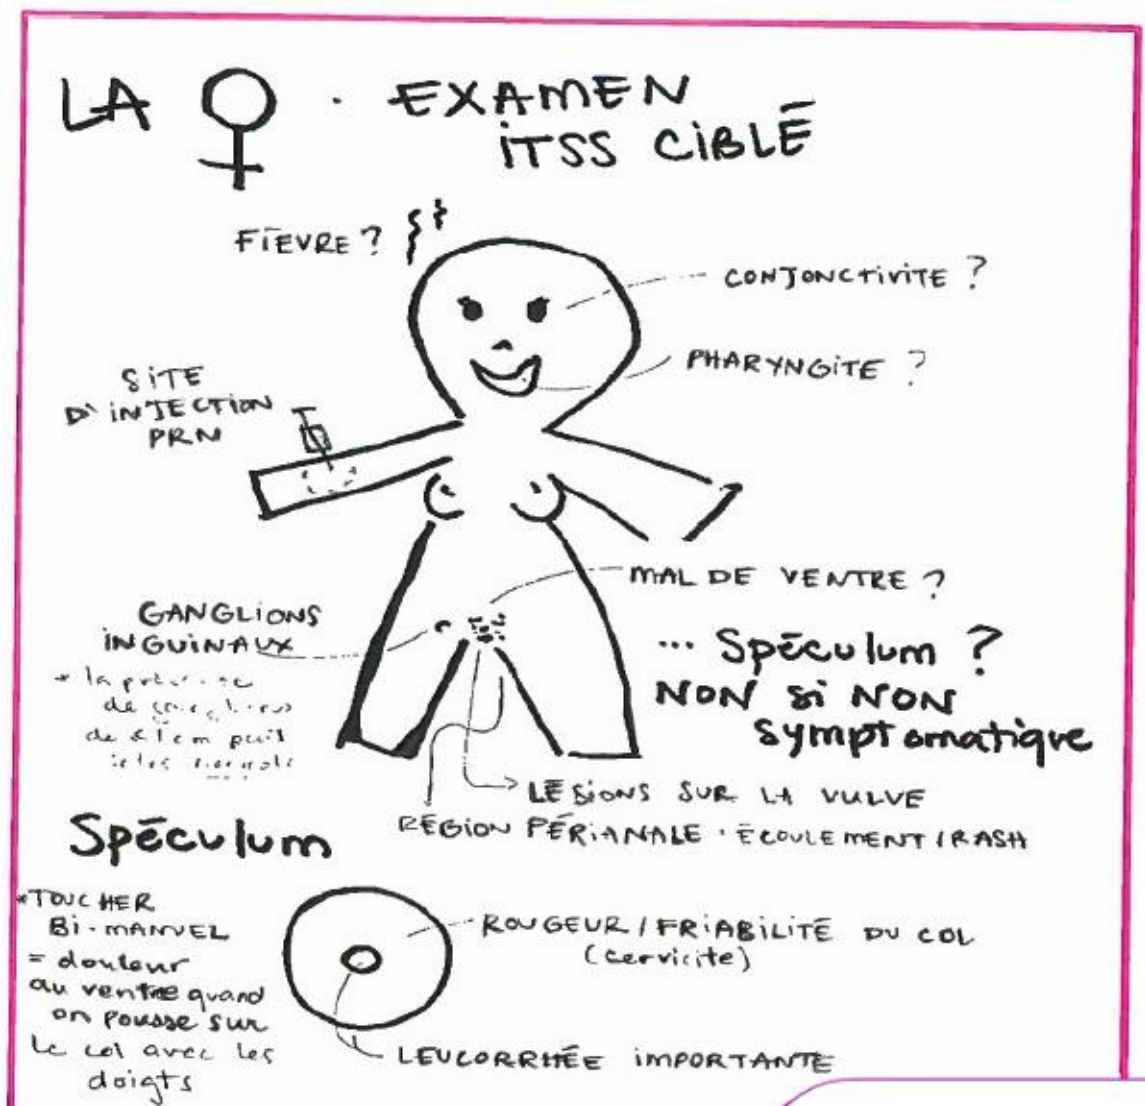 LA ♀ · EXAMEN
ITSS CIBLÉ
FIEVRE ?
CONJONCTIVITE ?
PHARYNGITE ?
SITE
D'INJECTION
PRN
MAL DE VENTRE ?
GANGLIONS
INGUINAUX
* la
de
de <1cm
... Spéculum ?
NON si NON
symptomatique
LÉSIONS SUR LA VULVE
RÉGION PÉRIANALE · ÉCOULEMENT / RASH
Spéculum
*TOUCHER
BI-MANUEL
= douleur
au ventre quand
on pousse sur
le col avec les
doigts
ROUGEUR / FRIABILITÉ DU COL
(cervicite)
LEUCORRHÉE IMPORTANTE